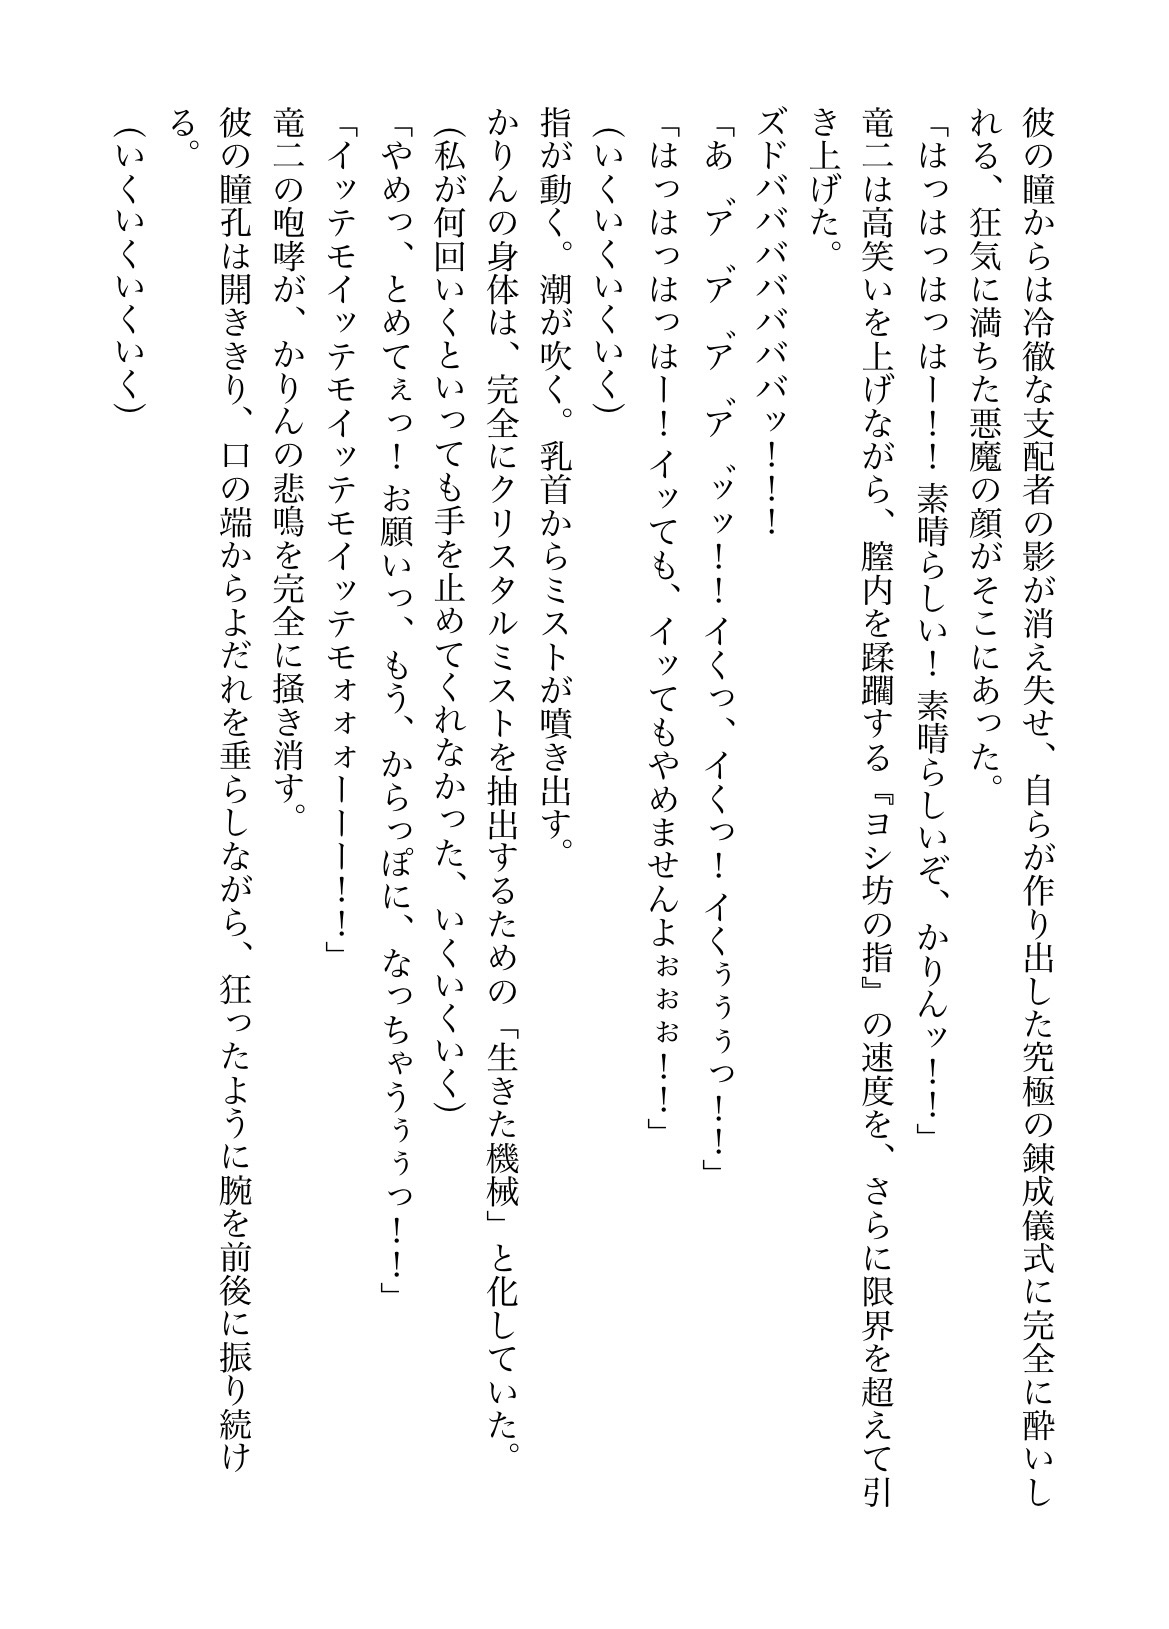 彼の瞳からは冷徹な支配者の影が消え失せ、自らが作り出した究極の錬成儀式に完全に酔いし
れる、狂気に満ちた悪魔の顔がそこにあった。
「はっはっはっはー！！素晴らしい！素晴らしいぞ、かりんッ！！」
竜二は高笑いを上げながら、膣内を蹂躙する『ヨシ坊の指』の速度を、さらに限界を超えて引
き上げた。
ズドババババババッ！！！
「あ゛ア゛ア゛ア゛ア゛ッッ！！イくっ、イくっ！イくぅぅぅっ！！」
「はっはっはっはー！イッても、イッてもやめませんよぉぉぉ！！」
（いくいくいくいく）
指が動く。潮が吹く。乳首からミストが噴き出す。
かりんの身体は、完全にクリスタルミストを抽出するための「生きた機械」と化していた。
（私が何回いくといっても手を止めてくれなかった、いくいくいく）
「やめっ、とめてぇっ！お願いっ、もう、からっぽに、なっちゃうぅぅっ！！」
「イッテモイッテモイッテモイッテモォォォーーー！！」
竜二の咆哮が、かりんの悲鳴を完全に掻き消す。
彼の瞳孔は開ききり、口の端からよだれを垂らしながら、狂ったように腕を前後に振り続け
る。
（いくいくいくいく）